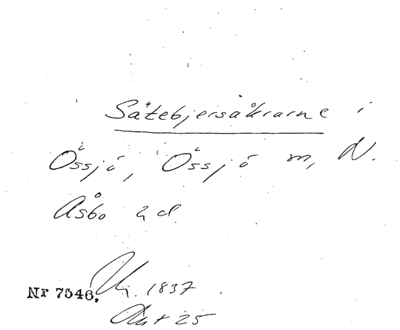 Sätebjersåkrarne i
Össjö, i Össjö m, N.
Åsbo hd.
Nr 7546.
1837
Akt 25